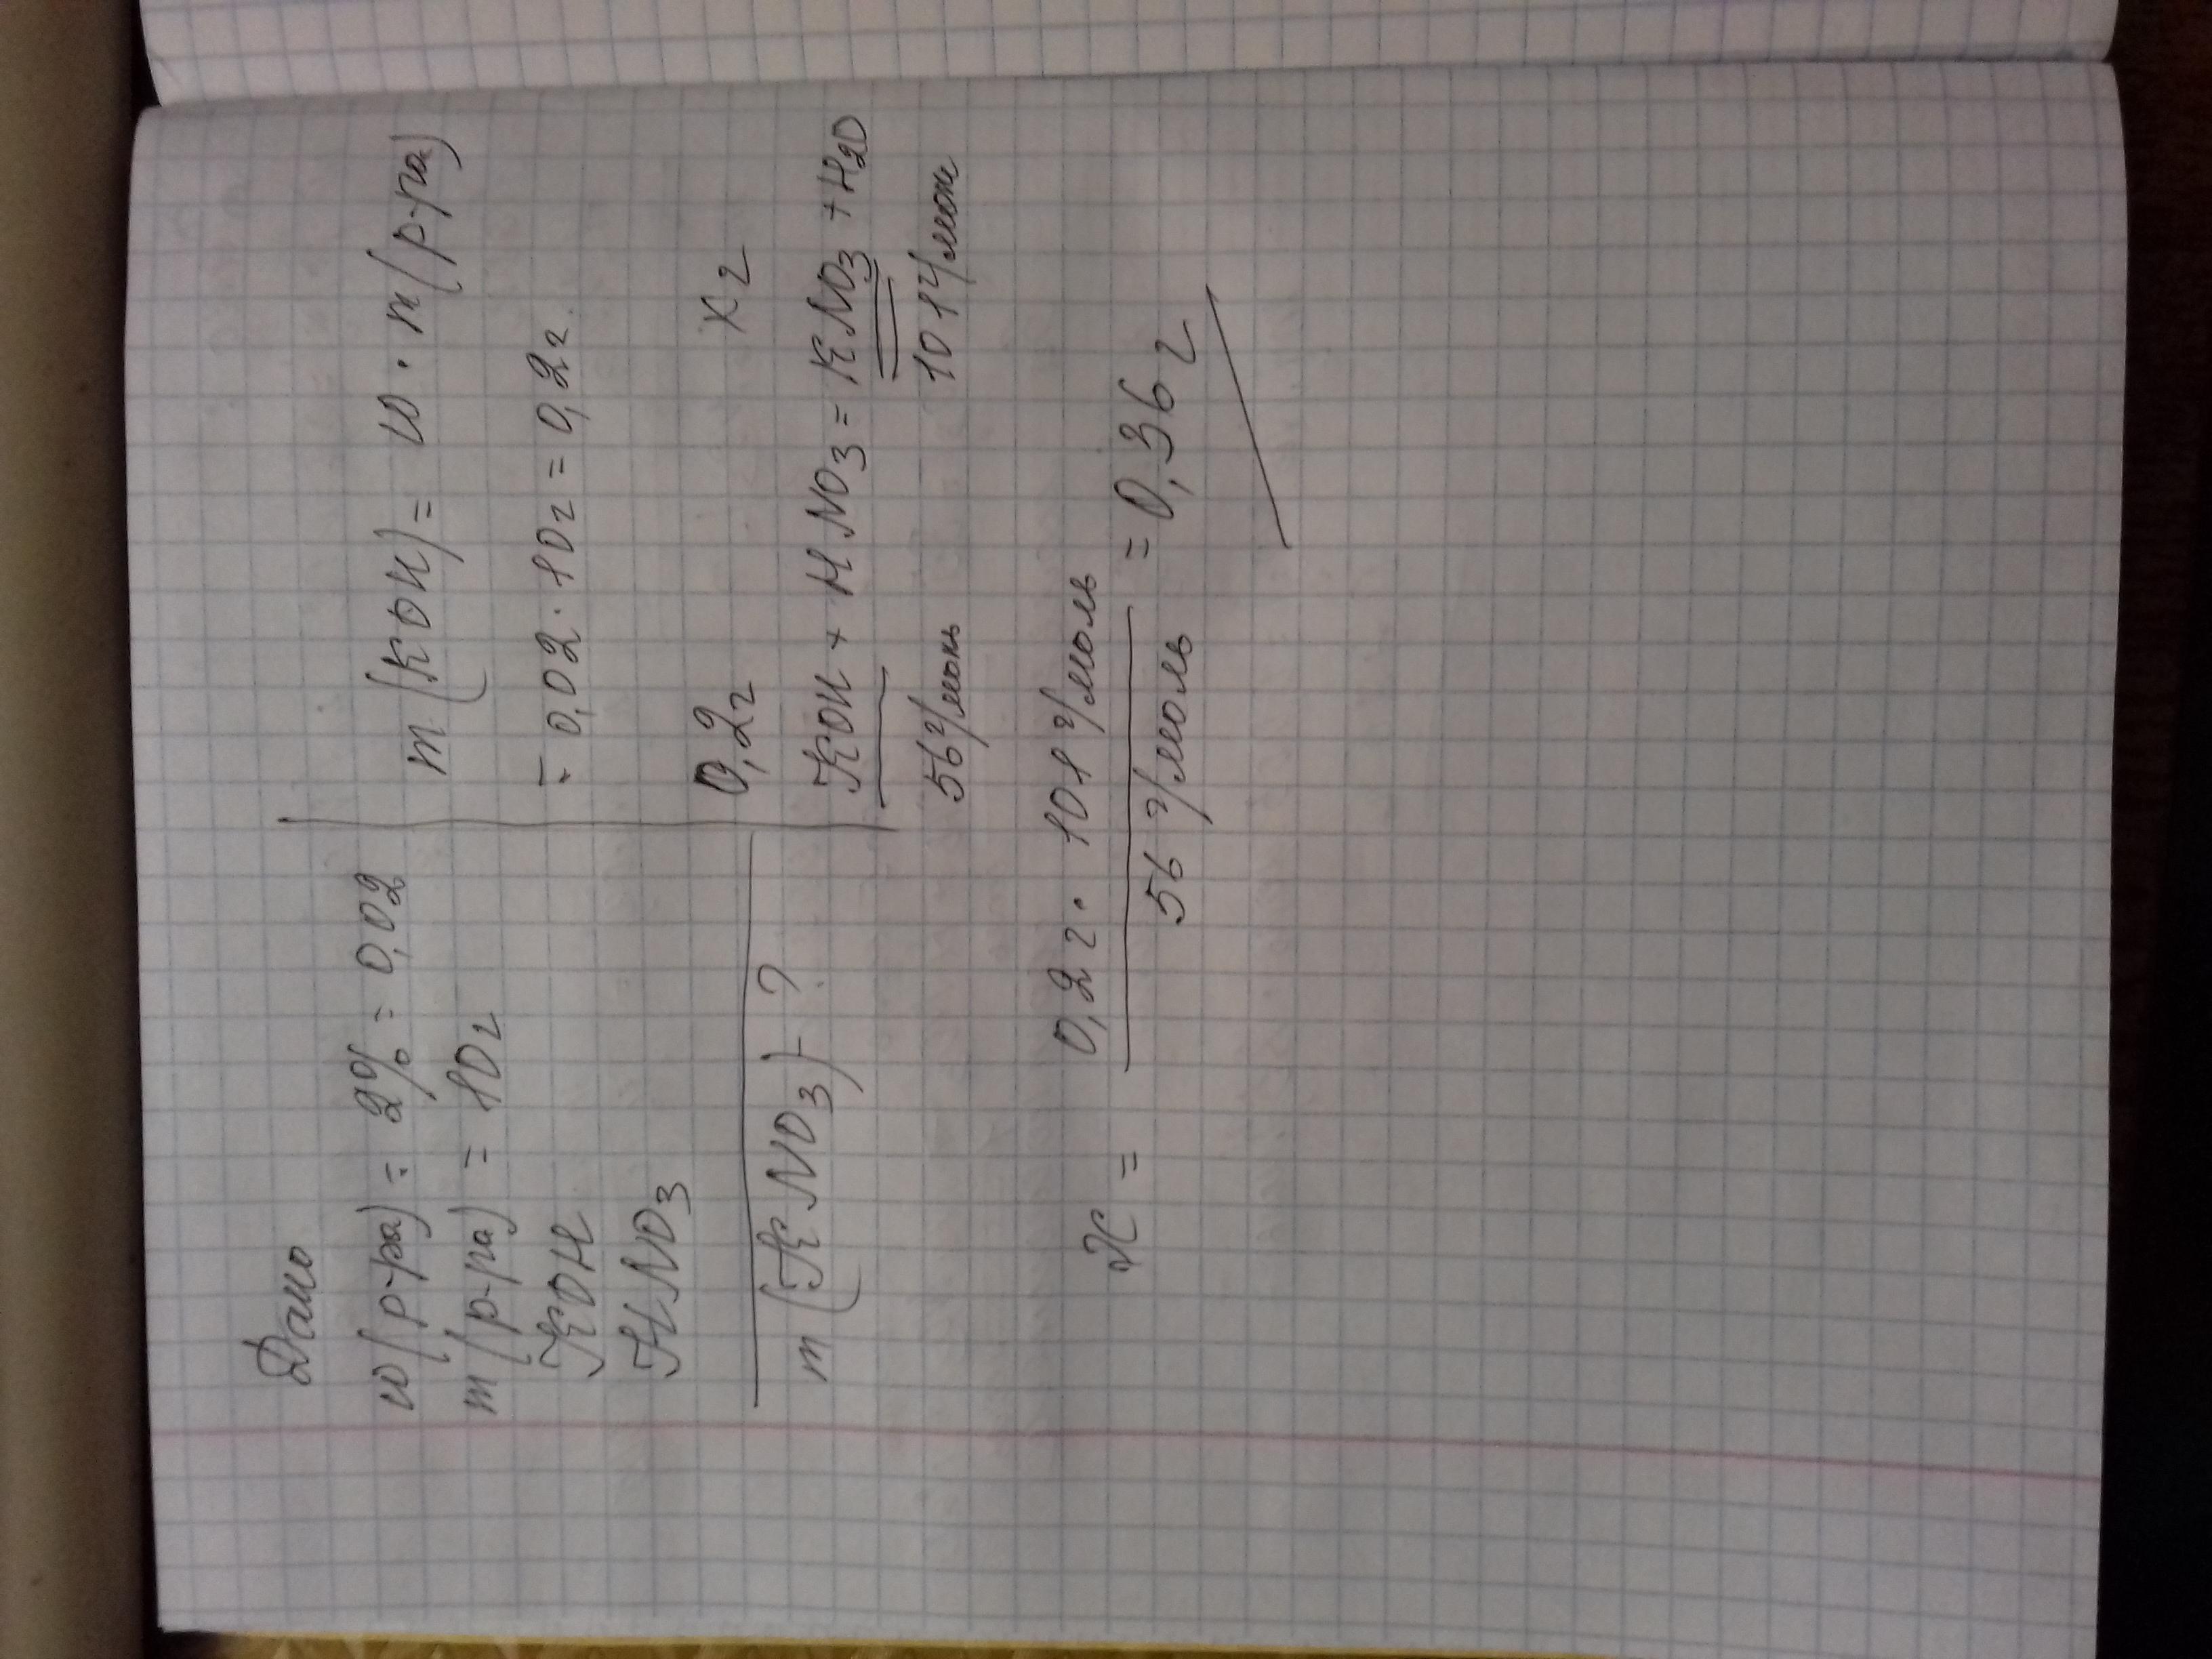 Дано
w(р-ра) = 2% = 0,02
m(р-ра) = 10г
KOH
HNO3
m(KNO3)-?
m(KOH) = w · m(р-ра)
= 0,02 · 10г = 0,2г.
0,2г xг
KOH + HNO3 = KNO3 + H2O
56г/моль 101г/моль
x = 0,2г · 101г/моль / 56г/моль = 0,36г